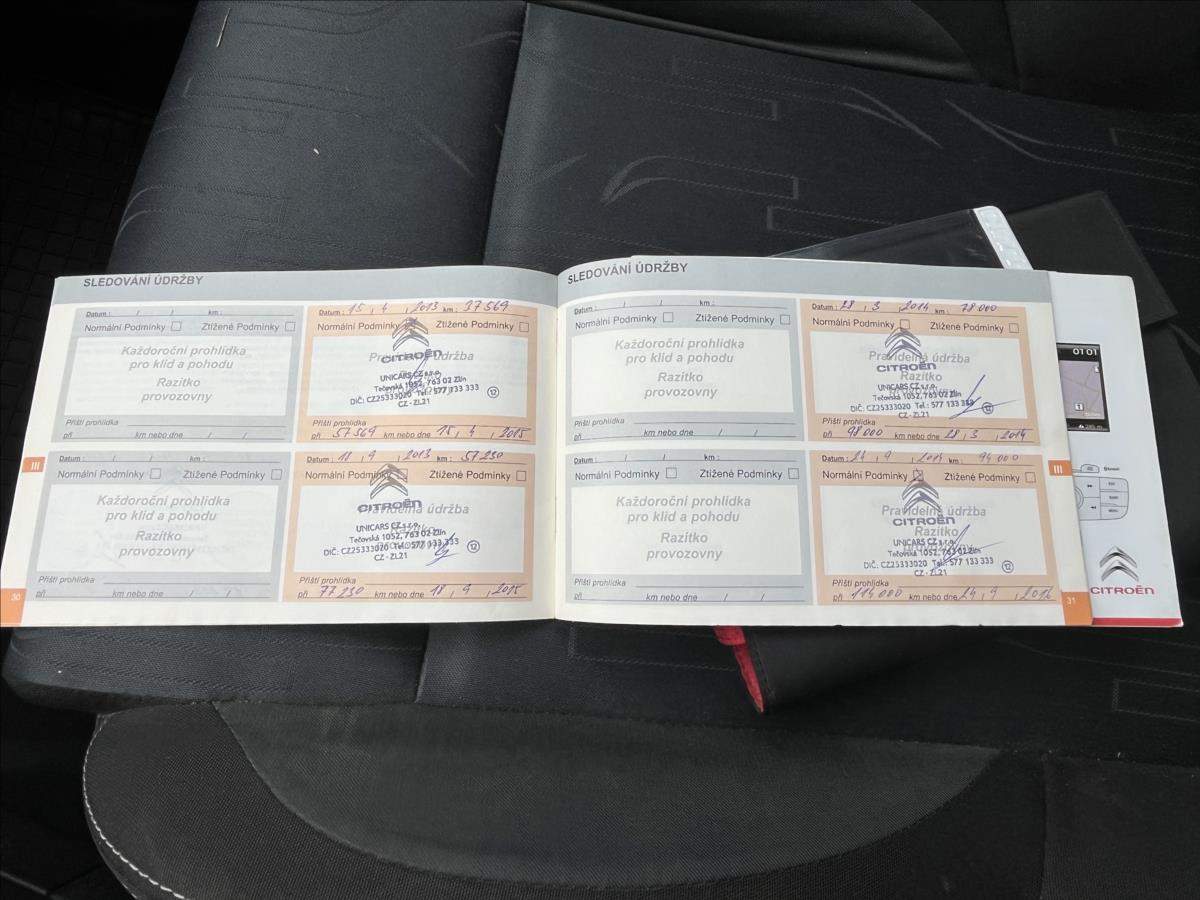 SLEDOVÁNÍ ÚDRŽBY
Datum : / / km :
Normální Podmínky Ztížené Podmínky
Každoroční prohlídka
pro klid a pohodu
Razítko
provozovny
Příští prohlídka
při km nebo dne / /
Datum : 15 , 4 , 2013 km : 37569
Normální Podmínky Ztížené Podmínky
Pravidelná údržba
CITROËN
Razítko
UNICARS CZ s.r.o.
Tečovská 1052, 763 02 Zlín
DIČ: CZ25333020 Tel.: 577 133 333
CZ - ZL21
12
Příští prohlídka
při 57569 km nebo dne 15 , 4 , 2015
Datum : / / km :
Normální Podmínky Ztížené Podmínky
Každoroční prohlídka
pro klid a pohodu
Razítko
provozovny
Příští prohlídka
při km nebo dne / /
Datum : 18 , 9 , 2013 km : 57230
Normální Podmínky Ztížené Podmínky
Pravidelná údržba
CITROËN
Razítko
UNICARS CZ s.r.o.
Tečovská 1052, 763 02 Zlín
DIČ: CZ25333020 Tel.: 577 133 333
CZ - ZL21
12
Příští prohlídka
při 77230 km nebo dne 18 , 9 , 2015
III
30
SLEDOVÁNÍ ÚDRŽBY
Datum : / / km :
Normální Podmínky Ztížené Podmínky
Každoroční prohlídka
pro klid a pohodu
Razítko
provozovny
Příští prohlídka
při km nebo dne / /
Datum : 28 , 3 , 2014 km : 78000
Normální Podmínky Ztížené Podmínky
Pravidelná údržba
CITROËN
Razítko
UNICARS CZ s.r.o.
Tečovská 1052, 763 02 Zlín
DIČ: CZ25333020 Tel.: 577 133 333
CZ - ZL21
12
Příští prohlídka
při 98000 km nebo dne 28 , 3 , 2014
Datum : / / km :
Normální Podmínky Ztížené Podmínky
Každoroční prohlídka
pro klid a pohodu
Razítko
provozovny
Příští prohlídka
při km nebo dne / /
Datum : 24 , 9 , 2014 km : 94000
Normální Podmínky Ztížené Podmínky
Pravidelná údržba
CITROËN
Razítko
provozovny
UNICARS CZ s.r.o.
Tečovská 1052, 763 02 Zlín
DIČ: CZ25333020 Tel.: 577 133 333
CZ - ZL21
12
Příští prohlídka
při 114000 km nebo dne 24 , 9 , 2016
III
31
01 01
CITROËN